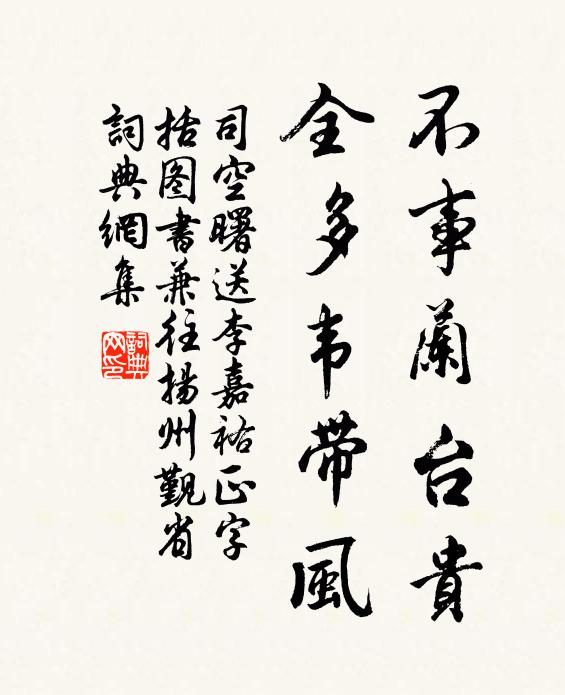 不事蘭台貴
全多韦带風
司空曙送李嘉祐正字
括图書兼往揚州覲省
詞典網集
詞典网印